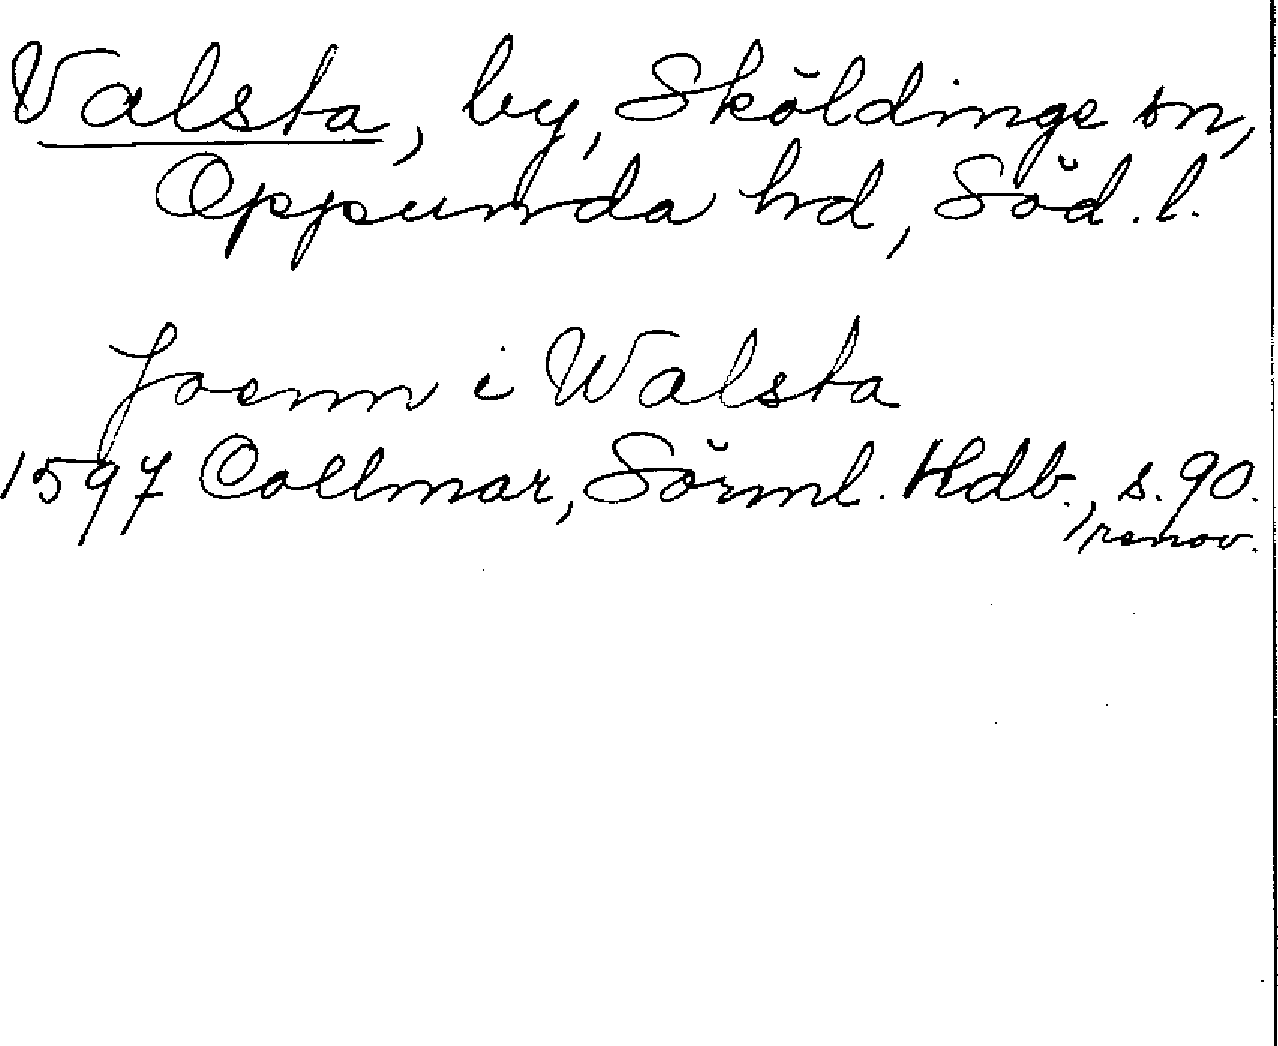 Valsta, by, Sköldinge sn,
Oppunda hd, Söd. l.
Joenn i Walsta
1597 Collmar, Sörml. Hdb., s. 90.
renov.